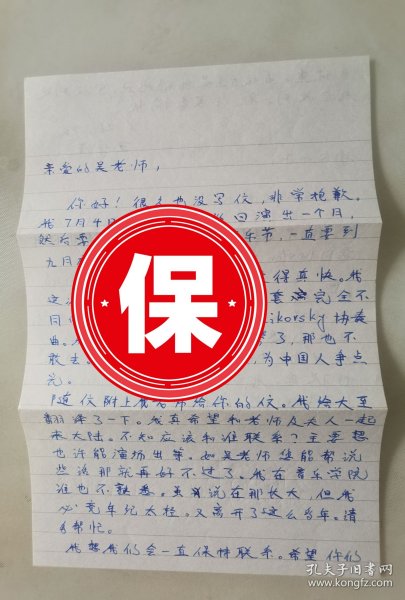 亲爱的吴老师，
你好！很久也没写信，非常抱歉。
我7月4日 回演出一个月，
然后 乐节，一直要到
九月
得真快。我
这 套 完全不
同 ikorsky 协奏
曲。 了，那也不
敢去 为中国人争点
光。
随信附上我老师给你的信。我给大至
翻译了一下。我真希望和老师及夫人一起
来大陆。不知应该和谁联系？主要想
也许能演场出等。如吴老师您能帮说
些话那就再好不过了。我在音乐学院
谁也不熟悉。虽说在那长大，但我
必竟年纪太轻。又离开了这么多年。请
多帮忙。
我想我们会一直保持联系。希望你们
保
孔夫子旧书网
www.kongfz.com